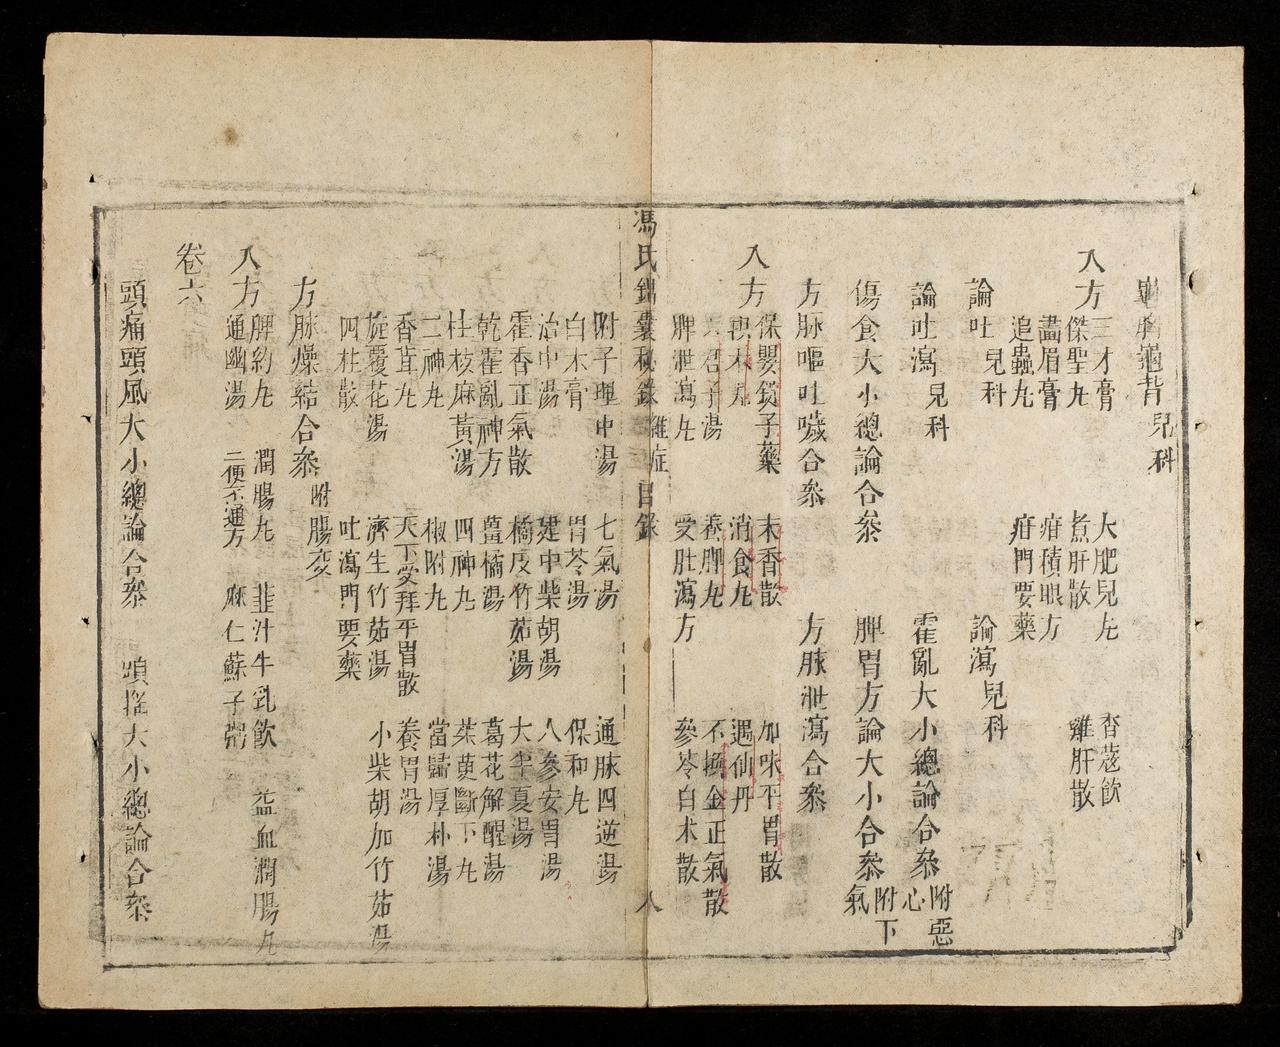 龜胸龜背 兒科
入方 三才膏 大肥兒丸 香蔻飲
傑聖丸 煮肝散 雞肝散
畵眉膏 疳積眼方
追蟲丸 疳門要藥
論吐 兒科 論瀉 兒科
論吐瀉 兒科 霍亂大小總論合叅 附惡心
傷食大小總論合叅 脾胃方論大小合叅 附下氣
方脉嘔吐噦合叅 方脉泄瀉合叅
入方 保嬰鎖子藥 木香散 加味平胃散
枳术丸 消食丸 遇仙丹
君子湯 養脾丸 不換金正氣散
脾泄瀉丸 受肚瀉方 參苓白术散
馮氏錦囊秘錄 雜症目錄 八
附子理中湯 七氣湯 通脉四逆湯
白术膏 胃苓湯 保和丸
治中湯 建中柴胡湯 人參安胃湯
霍香正氣散 橘皮竹茹湯 大半夏湯
乾霍亂神方 薑橘湯 葛花解醒湯
桂枝麻黃湯 四神丸 茱萸斷下丸
二神丸 椒附丸 當歸厚朴湯
香茸丸 天下受拜平胃散 養胃湯
旋覆花湯 濟生竹茹湯 小柴胡加竹茹湯
四柱散 吐瀉門要藥
方脉燥結合叅 附腸交
入方 脾約丸 潤腸丸 韭汁牛乳飲 益血潤腸丸
通幽湯 二便不通方 麻仁蘇子粥
卷六
頭痛頭風大小總論合叅 頭搖大小總論合叅